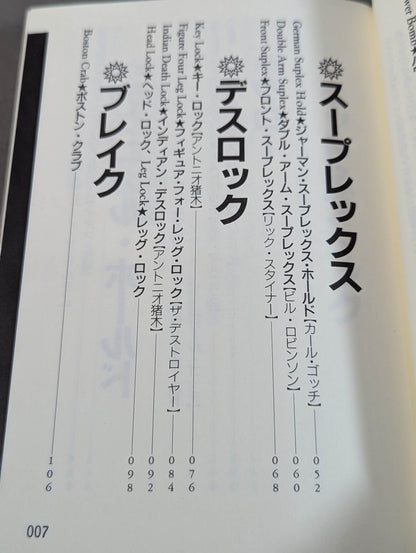 スープレックス
German Suplex Hold★ジャーマン・スープレックス・ホールド[カール・ゴッチ]——052
Double Arm Suplex★ダブル・アーム・スープレックス[ビル・ロビンソン]——060
Front Suplex★フロント・スープレックス[リック・スタイナー]——068
デスロック
Key Lock★キー・ロック[アントニオ猪木]——076
Figure Four Leg Lock★フィギュア・フォー・レッグ・ロック[ザ・デストロイヤー]——084
Indian Death Lock★インディアン・デスロック[アントニオ猪木]——092
Head Lock★ヘッド・ロック、Leg Lock★レッグ・ロック——098
ブレイク
Boston Crab★ボストン・クラブ——106
007